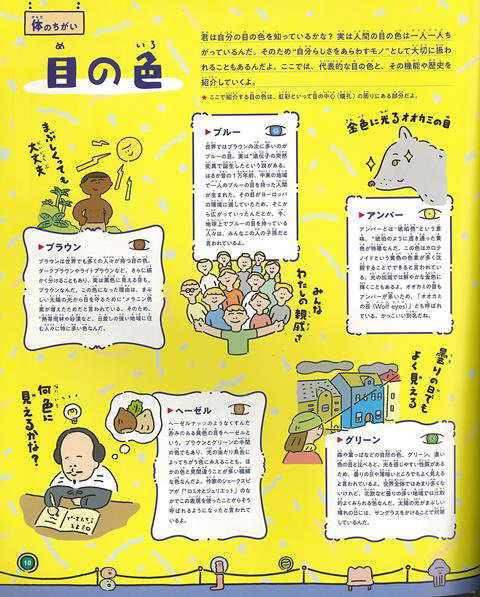 体のちがい
目の色
君は自分の目の色を知っているかな？ 実は人間の目の色は一人一人ち
がっているんだ。そのため“自分らしさをあらわすモノ”として大切に扱わ
れることもあるんだよ。ここでは、代表的な目の色と、その機能や歴史を
紹介していくよ。
★ここで紹介する目の色は、虹彩といって目の中心（瞳孔）の周りにある部分だよ。
まぶしくっても
大丈夫
▶ブルー
世界ではブラウンの次に多いのが
ブルーの目。実は“遺伝子の突然
変異で誕生したという説がある。
はるか昔の1万年前、中東の地域
で一人のブルーの目を持った人間
が生まれた。その目がヨーロッパ
の環境に適していたため、そこか
ら広がっていったんだとか。今、
地球上でブルーの目を持っている
人々は、みんなこの人の子孫だと
言われているよ。
みんな
わたしの親戚さ
金色に光るオオカミの目
▶アンバー
アンバーとは“琥珀色”という意
味。“琥珀のように透き通った黄
色が特徴なんだ。この色はカロテ
ノイドという黄色の色素が多く沈
殿することでできると言われてい
る。光の加減では鮮やかな金色に
輝くこともあるよ。オオカミの目も
アンバーが多いため、「オオカミ
の目（Wolf eyes）」とも呼ばれ
ている。かっこいい別名だね。
▶ブラウン
ブラウンは世界でも多くの人々が持つ目の色。
ダークブラウンやライトブラウンなど、さらに細
かく分けることもあり、実は黒色に見える目も、
ブラウンなんだ。この色になった理由は、まぶ
しい太陽の光から目を守るために“メラニン色
素が増えたためだと言われている。そのため、
“熱帯雨林や砂漠など、日差しの強い地域に住
む人々に特に多い色なんだ。
何色に
見えるかな？
▶ヘーゼル
ヘーゼルナッツのようなくすんだ
赤みのある黄色の目をヘーゼルと
いう。ブラウンとグリーンの中間
の色でもあり、光の当たり具合に
よってちがう色にみえることも。ほ
かの色と見間違うことが多い繊細
な色なんだよ。作家のシェークスピ
アが『ロミオとジュリエット』のな
かでこの表現を使ったことからそう
呼ばれるようになったと言われて
いるよ。
曇りの日でも
よく見える
▶グリーン
森や葉っぱなどの自然の色、グリーン。濃い
色の目と比べると、光を感じやすい性質がある
ため、曇りの日や薄暗いところでもよく見える
と言われているよ。世界全体ではあまり多くな
いけれど、北欧など曇りの多い地域では比較
的よくみられる色なんだ。太陽の光がまぶしい
晴れの日には、サングラスをかけることで対策
しているんだ。
10